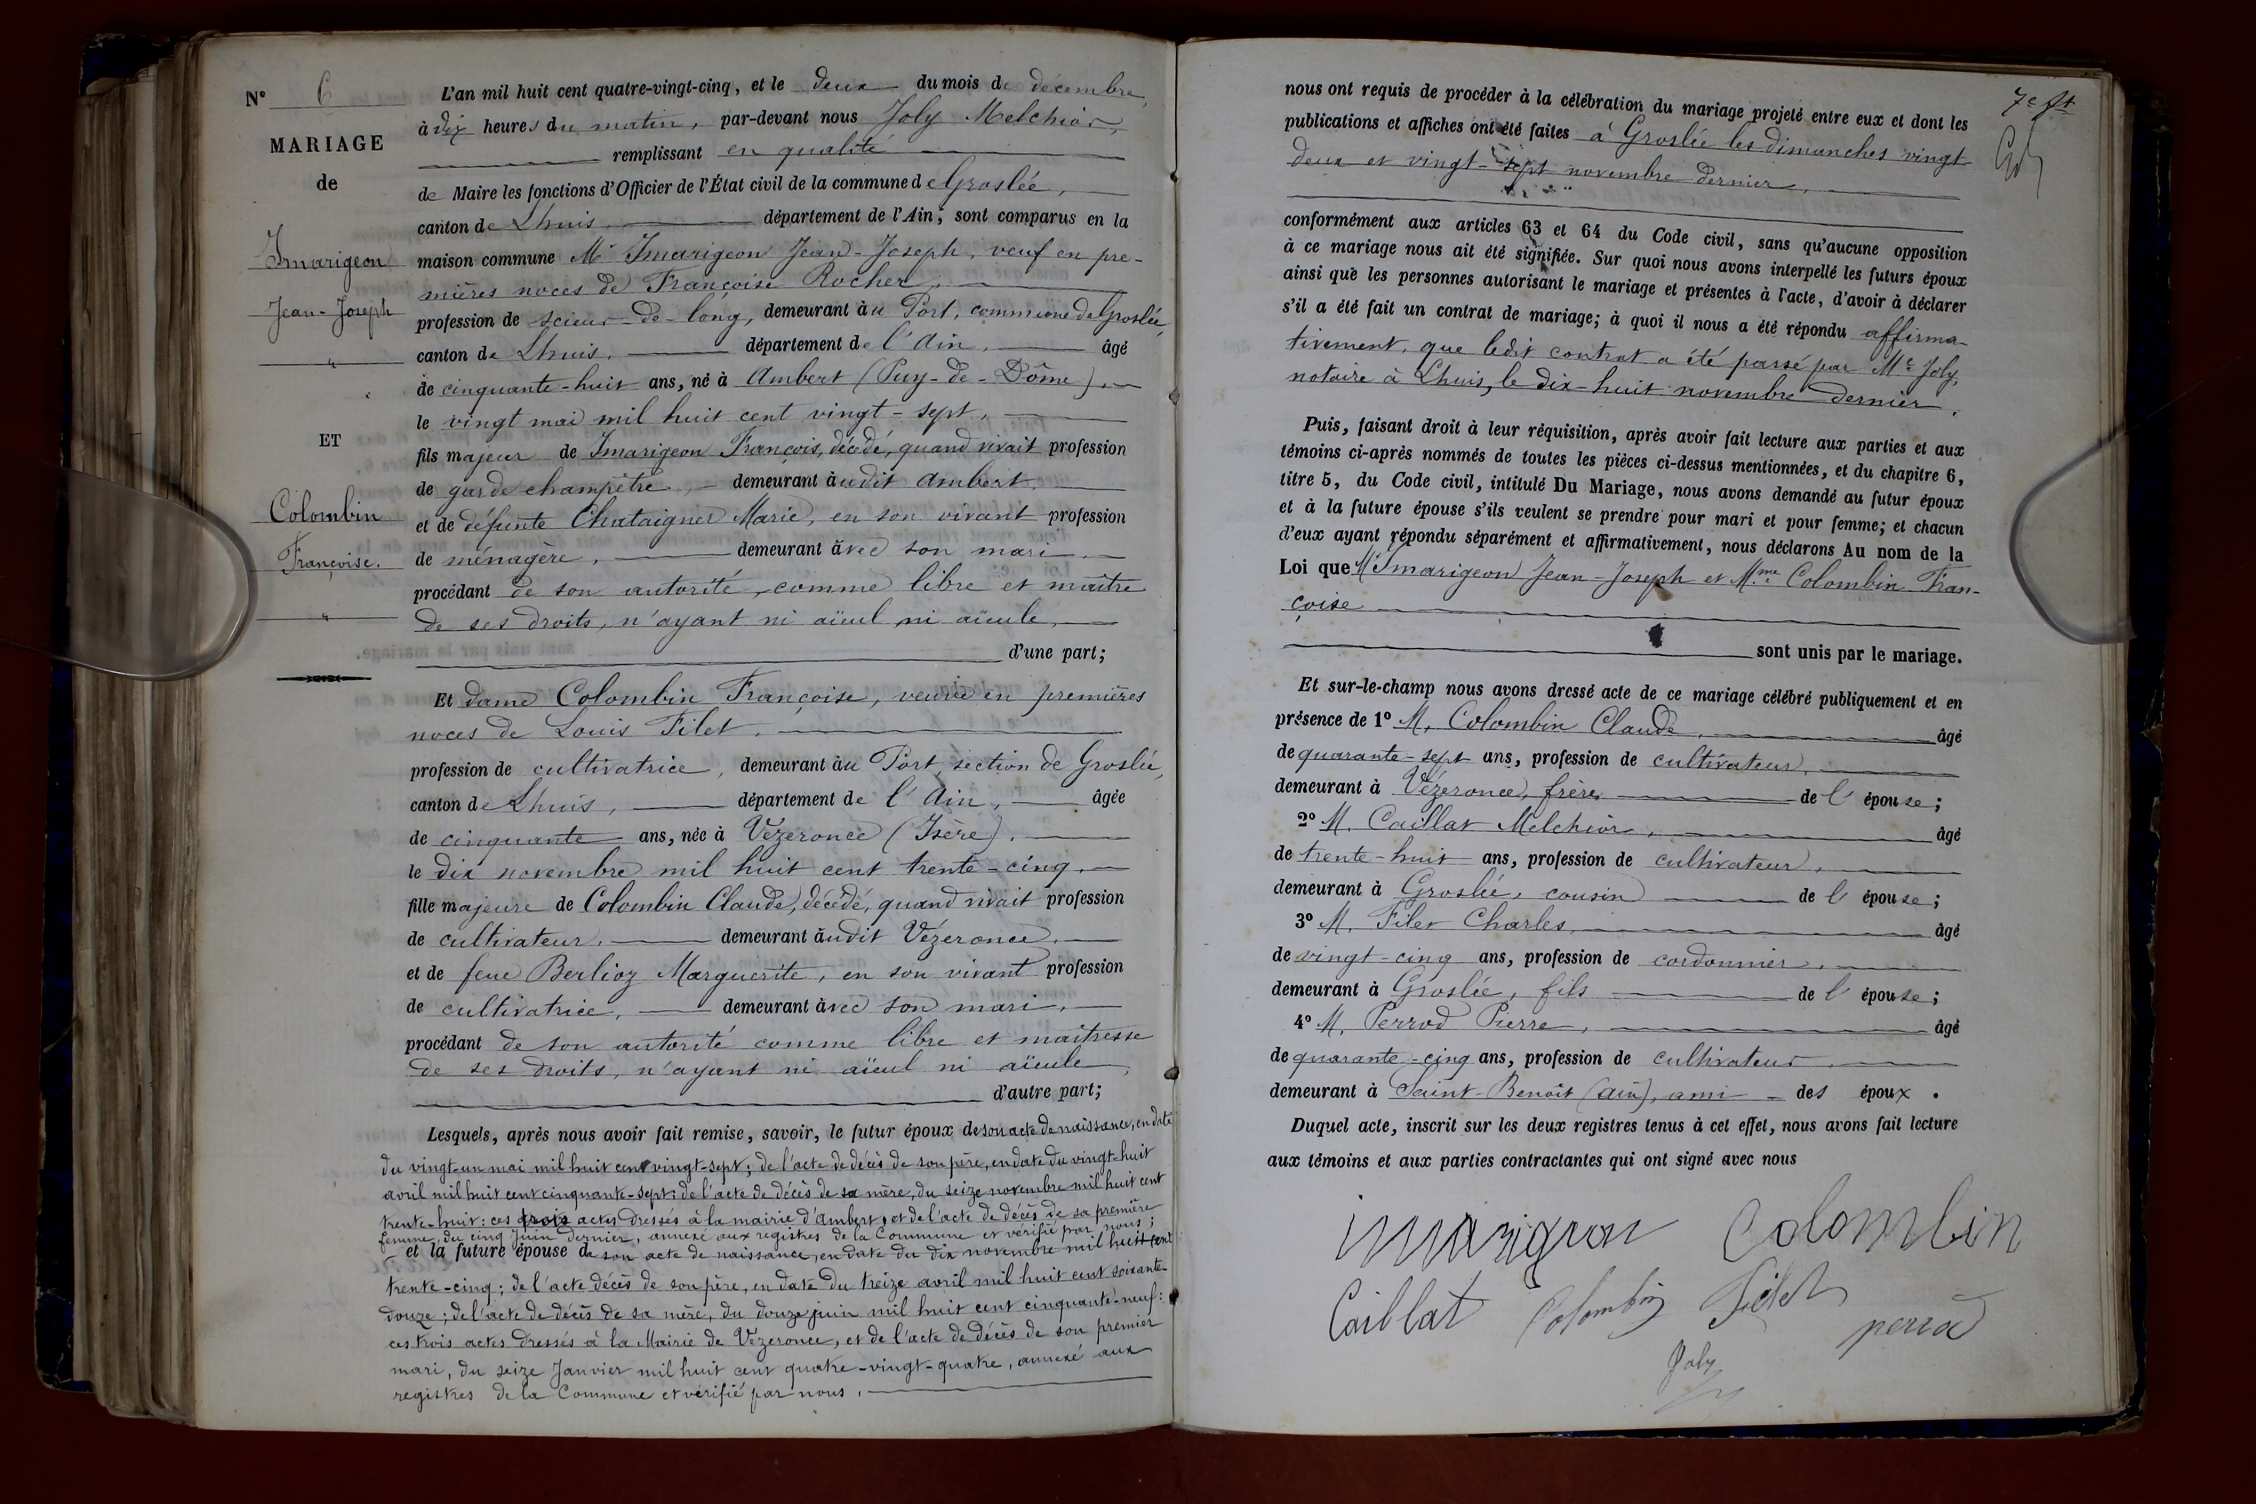 N° 6
MARIAGE
de
Imarigeon
Jean-Joseph
"
ET
Colombin
Françoise.
"
L'an mil huit cent quatre-vingt-cinq, et le deux du mois de décembre,
à dix heures du matin, par-devant nous Joly Melchior,
remplissant en qualité
de Maire les fonctions d'Officier de l'État civil de la commune de Groslée,
canton de Lhuis, département de l'Ain, sont comparus en la
maison commune Mr Imarigeon Jean-Joseph, veuf en pre-
mières noces de Françoise Rocher,
profession de scieur-de-long, demeurant au Port, commune de Groslée,
canton de Lhuis, département de l'Ain, âgé
de cinquante-huit ans, né à Ambert (Puy-de-Dôme),
le vingt mai mil huit cent vingt-sept,
fils majeur de Imarigeon François, décédé, quand vivait profession
de garde champêtre, demeurant audit Ambert,
et de défunte Chataigner Marie, en son vivant profession
de ménagère, demeurant avec son mari,
procédant de son autorité, comme libre et maître
de ses droits, n'ayant ni aïeul ni aïeule,
d'une part;
Et dame Colombin Françoise, veuve en premières
noces de Louis Filet,
profession de cultivatrice, demeurant au Port, section de Groslée,
canton de Lhuis, département de l'Ain, âgée
de cinquante ans, née à Vézeronce (Isère),
le dix novembre mil huit cent trente-cinq,
fille majeure de Colombin Claude, décédé, quand vivait profession
de cultivateur, demeurant audit Vézeronce,
et de feue Berlioz Marguerite, en son vivant profession
de cultivatrice, demeurant avec son mari,
procédant de son autorité comme libre et maîtresse
de ses droits, n'ayant ni aïeul ni aïeule,
d'autre part;
Lesquels, après nous avoir fait remise, savoir, le futur époux de son acte de naissance, en date
du vingt-un mai mil huit cent vingt-sept; de l'acte de décès de son père, en date du vingt-huit
avril mil huit cent cinquante-sept; de l'acte de décès de sa mère, du seize novembre mil huit cent
trente-huit: ces trois actes dressés à la mairie d'Ambert, et de l'acte de décès de sa première
femme, du cinq Juin dernier, annexé aux registres de la Commune et vérifié par nous;
et la future épouse de son acte de naissance, en date du dix novembre mil huit cent
trente-cinq; de l'acte décès de son père, en date du treize avril mil huit cent soixante-
douze; de l'acte de décès de sa mère, du douze juin mil huit cent cinquante-neuf:
ces trois actes dressés à la Mairie de Vézeronce, et de l'acte de décès de son premier
mari, du seize Janvier mil huit cent quatre-vingt-quatre, annexé aux
registres de la Commune et vérifié par nous.
7e ft
nous ont requis de procéder à la célébration du mariage projeté entre eux et dont les
publications et affiches ont été faites à Groslée les dimanches vingt-
deux et vingt-sept novembre dernier,
conformément aux articles 63 et 64 du Code civil, sans qu'aucune opposition
à ce mariage nous ait été signifiée. Sur quoi nous avons interpellé les futurs époux
ainsi que les personnes autorisant le mariage et présentes à l'acte, d'avoir à déclarer
s'il a été fait un contrat de mariage; à quoi il nous a été répondu affirma-
tivement, que ledit contrat a été passé par Me Joly,
notaire à Lhuis, le dix-huit novembre dernier.
Puis, faisant droit à leur réquisition, après avoir fait lecture aux parties et aux
témoins ci-après nommés de toutes les pièces ci-dessus mentionnées, et du chapitre 6,
titre 5, du Code civil, intitulé Du Mariage, nous avons demandé au futur époux
et à la future épouse s'ils veulent se prendre pour mari et pour femme; et chacun
d'eux ayant répondu séparément et affirmativement, nous déclarons Au nom de la
Loi que Mr Imarigeon Jean-Joseph et Mme Colombin Fran-
çoise
sont unis par le mariage.
Et sur-le-champ nous avons dressé acte de ce mariage célébré publiquement et en
présence de 1° M. Colombin Claude, âgé
de quarante-sept ans, profession de cultivateur,
demeurant à Vézeronce, frère de l'épouse;
2° M. Caillat Melchior, âgé
de trente-huit ans, profession de cultivateur,
demeurant à Groslée, cousin de l'épouse;
3° M. Filet Charles, âgé
de vingt-cinq ans, profession de cordonnier,
demeurant à Groslée, fils de l'épouse;
4° M. Perrod Pierre, âgé
de quarante-cinq ans, profession de cultivateur
demeurant à Saint-Benoît (Ain), ami des époux.
Duquel acte, inscrit sur les deux registres tenus à cet effet, nous avons fait lecture
aux témoins et aux parties contractantes qui ont signé avec nous
imarigeon Colombin
Caillat Colombin Filet perrod
Joly